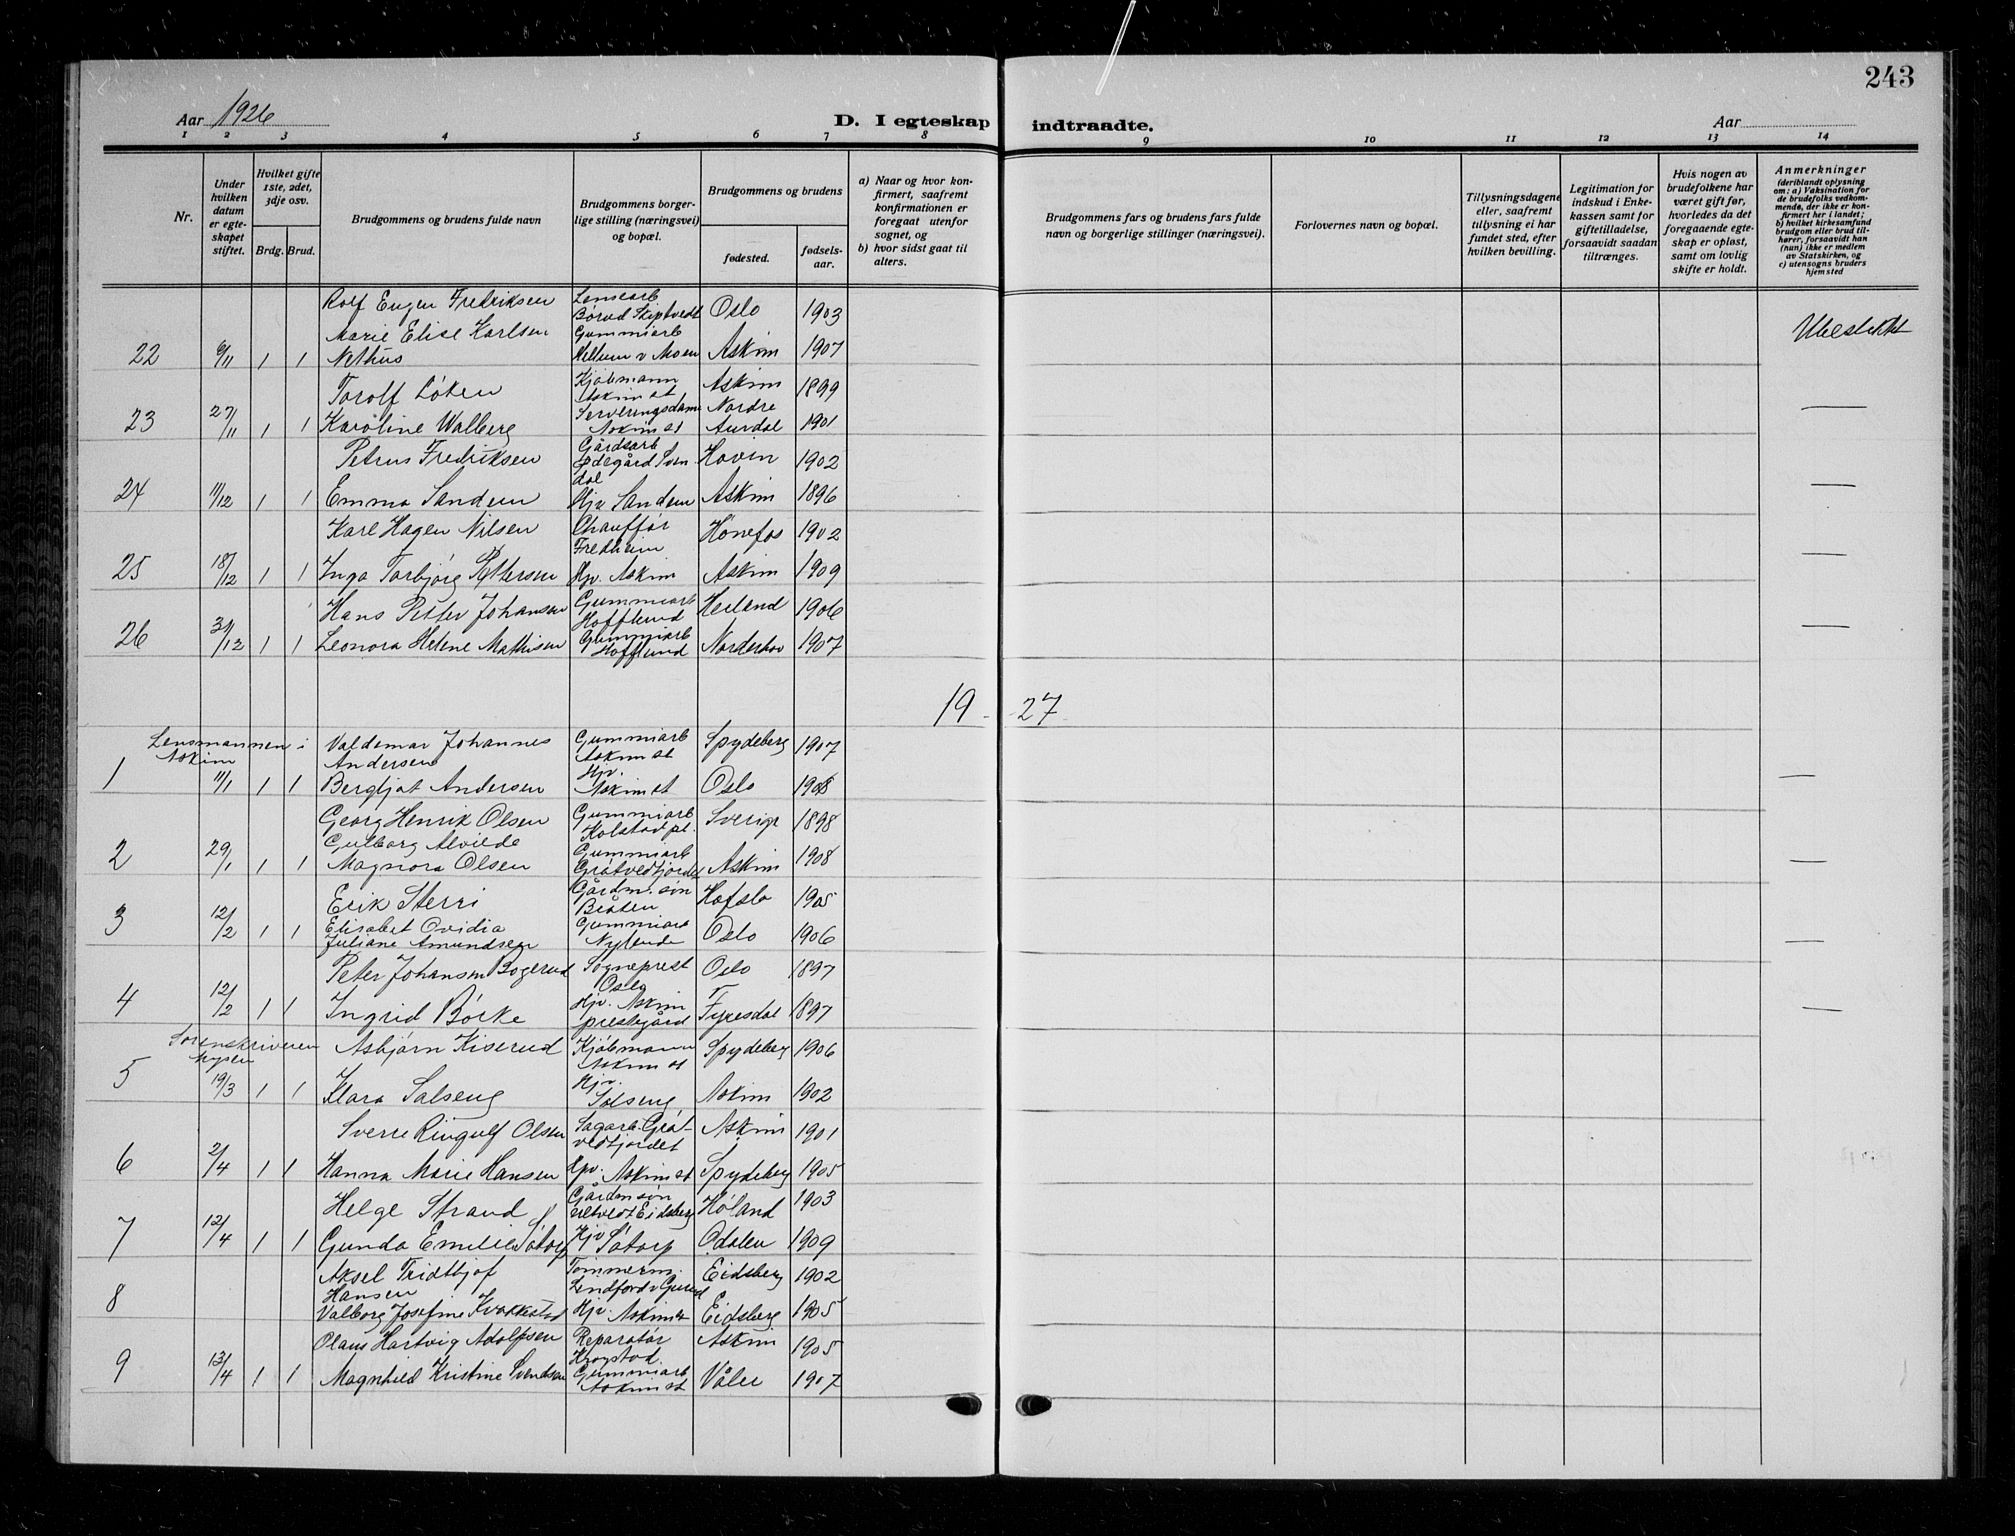 243
Aar 1926
D. I egteskap indtraadte.
Aar
1 2 3 4 5 6 7 8 9 10 11 12 13 14
Nr.
Under hvilken datum er egteskapet stiftet.
Hvilket gifte 1ste, 2det, 3dje osv.
Brdg. Brud.
Brudgommens og brudens fulde navn
Brudgommens borgerlige stilling (næringsvei) og bopæl.
Brudgommens og brudens
fødested.
fødselsaar.
a) Naar og hvor konfirmert, saafremt konfirmationen er foregaat utenfor sognet, og
b) hvor sidst gaat til alters.
Brudgommens fars og brudens fars fulde navn og borgerlige stillinger (næringsvei).
Forlovernes navn og bopæl.
Tillysningsdagene eller, saafremt tillysning ei har fundet sted, efter hvilken bevilling.
Legitimation for indskud i Enkekassen samt for giftetilladelse, forsaavidt saadan tiltrænges.
Hvis nogen av brudefolkene har været gift før, hvorledes da det foregaaende egteskap er opløst, samt om lovlig skifte er holdt.
Anmerkninger
(deriblandt oplysning om: a) Vaksination for de brudefolks vedkommende, der ikke er konfirmert her i landet; b) hvilket kirkesamfund brudgom eller brud tilhører, forsaavidt han (hun) ikke er medlem av Statskirken, og c) utensogns bruders hjemsted
Rolf Eugen Fredriksen Lensearb Børud Skiptvedt Oslo 1903
22 6/11 1 1 Marie Elise Karlsen Nethus Gummiarb v Moen Askim 1907
Torolf Løken Kjøbmann Askim st Askim 1899
23 27/11 1 1 Karoline Walberg Serveringsdame Askim st Nordre Aurdal 1901
Petrus Fredriksen Gårdsarb Ødegård Svendal Hovin 1902
24 11/12 1 1 Emma Sandem Hjv Sandem Askim 1896
Karl Hagen Nilsen Chauffør Fredheim Hønefos 1902
25 18/12 1 1 Inga Torbjørg Pettersen Hjv. Askim Askim 1909
Hans Petter Johansen Gummiarb Hofflund 1906
26 31/12 1 1 Leonora Helene Mathisen Gummiarb Hofflund Norderhov 1907
19 - 27
Lensmannen i Askim
Valdemar Johannes Andersen Gummiarb Askim st Spydeberg 1907
1 11/1 1 1 Bergljot Andersen Hjv. Askim st Oslo 1908
Georg Henrik Olsen Gummiarb Kolstad pl. Sverige 1898
2 29/1 1 1 Gulborg Alvilde Magnora Olsen Gummiarb Grøtvedtjordet Askim 1908
Erik Sterri Gårdm. søn Bråten Hafslo 1905
3 12/2 1 1 Elisabet Ovidia Juliane Amundsen Gummiarb Nylende Oslo 1906
Peter Johansen Bogerud Sogneprest Oslo Oslo 1897
4 12/2 1 1 Ingrid Børke Hjv. Askim prestegård Fyresdal 1897
Sorenskriveren Mysen
Asbjørn Kiserud Kjøbmann Askim st Spydeberg 1906
5 19/3 1 1 Klara Solseng Hjv. Solseng Askim 1902
Sverre Ringulf Olsen Sagarb. Grøtvedtjordet Askim 1901
6 2/4 1 1 Hanna Marie Hansen Hjv. Askim st Spydeberg 1905
Helge Strand Gårdm søn Eidsberg Høland 1903
7 12/4 1 1 Gunda Emilie Søtorp Hjv Søtorp Odalen 1909
Aksel Fridthjof Hansen Tømmerm. Eidsberg 1902
8 Valborg Josefine Kvakkestad Hjv. Askim st Eidsberg 1905
Olaus Hartvig Adolfsen Reparatør Krogstad. Askim 1905
9 13/4 1 1 Magnhild Kristine Svendsen Gummiarb Askim st Våler 1907